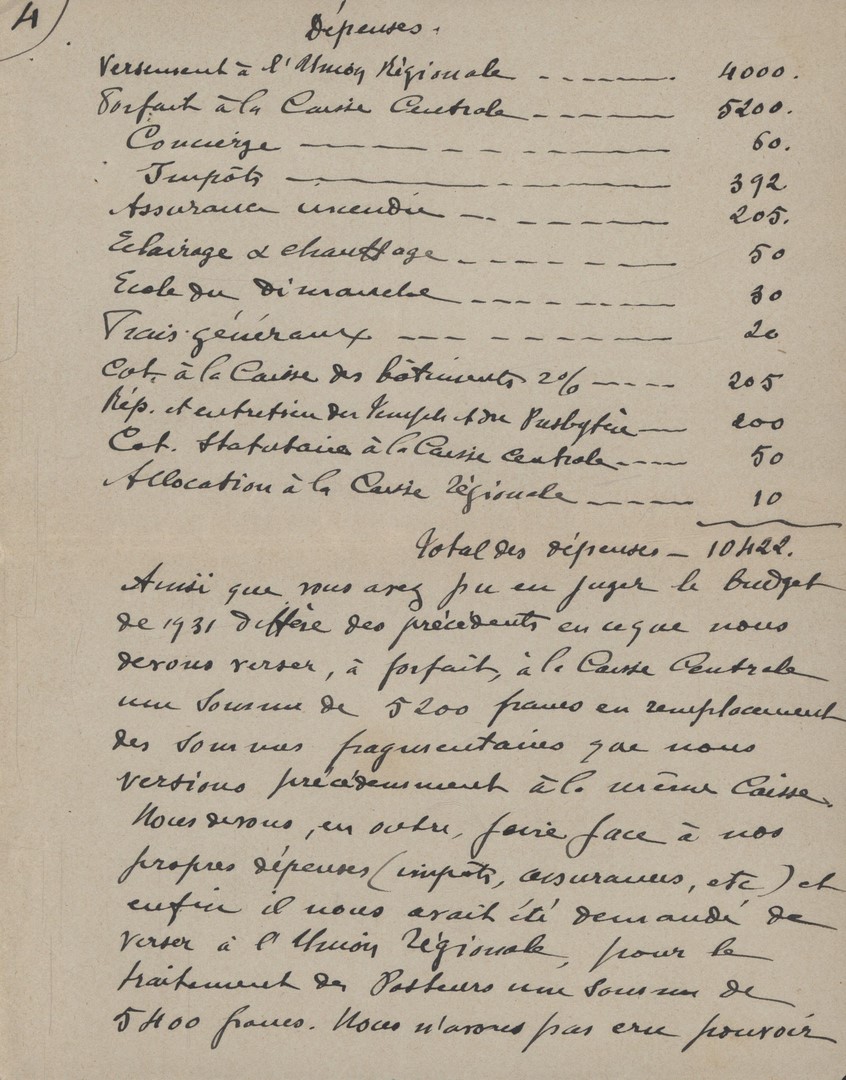 4
Dépenses.
Versement à l'Union Régionale 4000.
Forfait à la Caisse Centrale 5200.
Concierge 60.
Impôts 392
Assurance incendie 205.
Eclairage & chauffage 50
Ecole du Dimanche 30
Frais généraux 20
Cot. à la Caisse des bâtiments 2% 205
Rép. et entretien du Temple et du Presbytère 200
Cot. Statutaire à la Caisse centrale 50
Allocation à la Caisse régionale 10
Total des dépenses – 10422.
Ainsi que vous avez pu en juger le budget
de 1931 diffère des précédents en ce que nous
devons verser, à forfait, à la Caisse Centrale
une Somme de 5200 francs en remplacement
des Sommes fragmentaires que nous
versions précédemment à la même Caisse.
Nous devons, en outre, faire face à nos
propres dépenses (impôts, assurances, etc) et
enfin il nous avait été demandé de
verser à l'Union régionale, pour le
traitement des Pasteurs une Somme de
5400 francs. Nous n'avons pas cru pouvoir